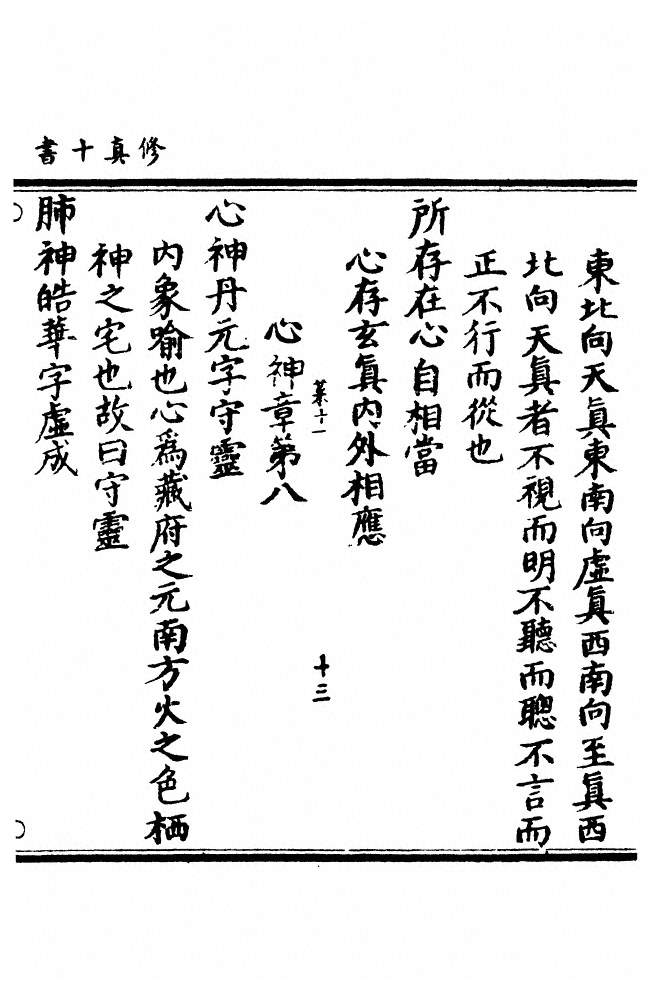 修真十書
東北向天真東南向虛真西南向至真西
北向天真者不視而明不聽而聰不言而
正不行而從也
所存在心自相當
心存玄真内外相應
菓十一
十三
心神章第八
心神丹元字守靈
内象喻也心爲藏府之元南方火之色栖
神之宅也故曰守靈
肺神皓華字虛成